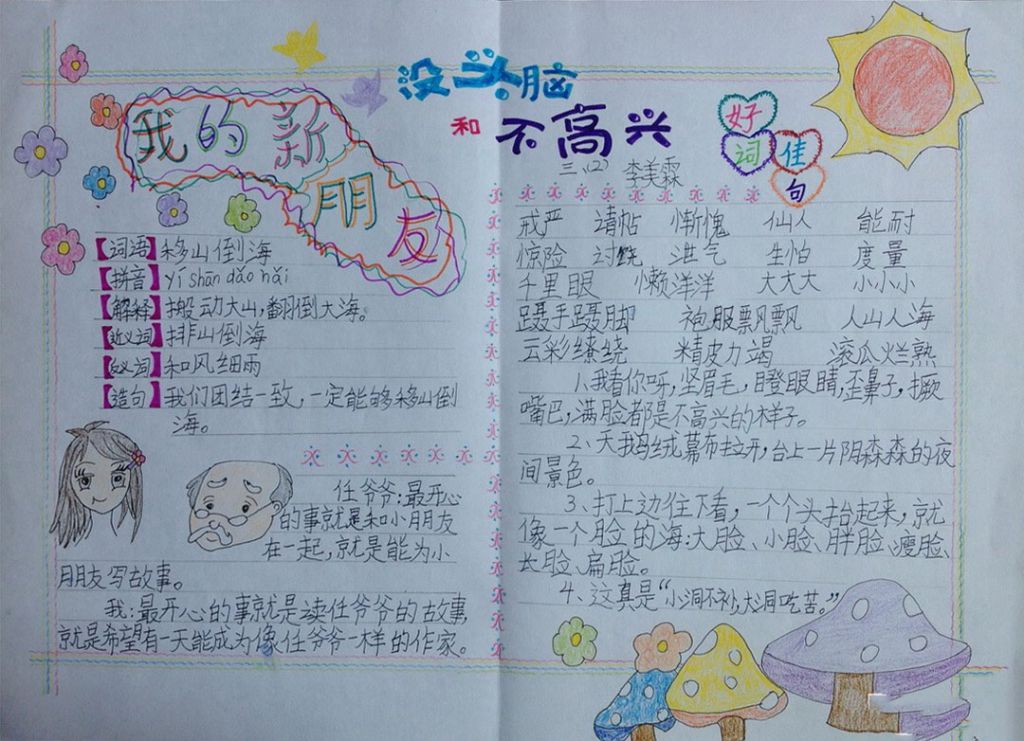 没头脑
和 不高兴
三、(2) 李美霖
我的新
朋友
【词语】移山倒海
【拼音】yí shān dǎo hǎi
【解释】搬动大山,翻倒大海。
【近义词】排山倒海
【反义词】和风细雨
【造句】我们团结一致,一定能够移山倒
海。
任爷爷:最开心
的事就是和小朋友
在一起,就是能为小
朋友写故事。
我:最开心的事就是读任爷爷的故事,
就是希望有一天能成为像任爷爷一样的作家。
好
词 佳
句
戒严 请帖 惭愧 仙人 能耐
惊险 讨饶 淇气 生怕 度量
千里眼 懒洋洋 大大大 小小小
蹑手蹑脚 袍服飘飘 人山人海
云彩缭绕 精皮力竭 滚瓜烂熟
1、我看你呀,坚眉毛,瞪眼睛,歪鼻子,撅
嘴巴,满脸都是不高兴的样子。
2、天鹅绒幕布拉开,台上一片阴森森的夜
间景色。
3、打上边往下看,一个个头抬起来,就
像一个脸的海:大脸、小脸、胖脸、瘦脸、
长脸、扁脸。
4、这真是“小洞不补,大洞吃苦。”